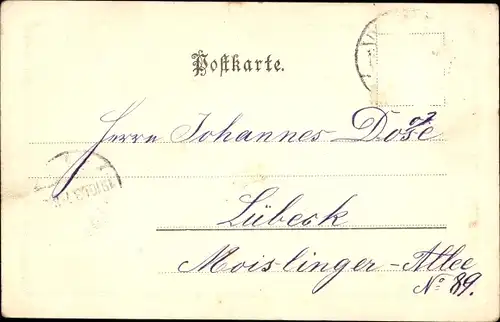 Postkarte.
Herrn Johannes Dose
Lübeck
Moislinger-Allee
No 89.